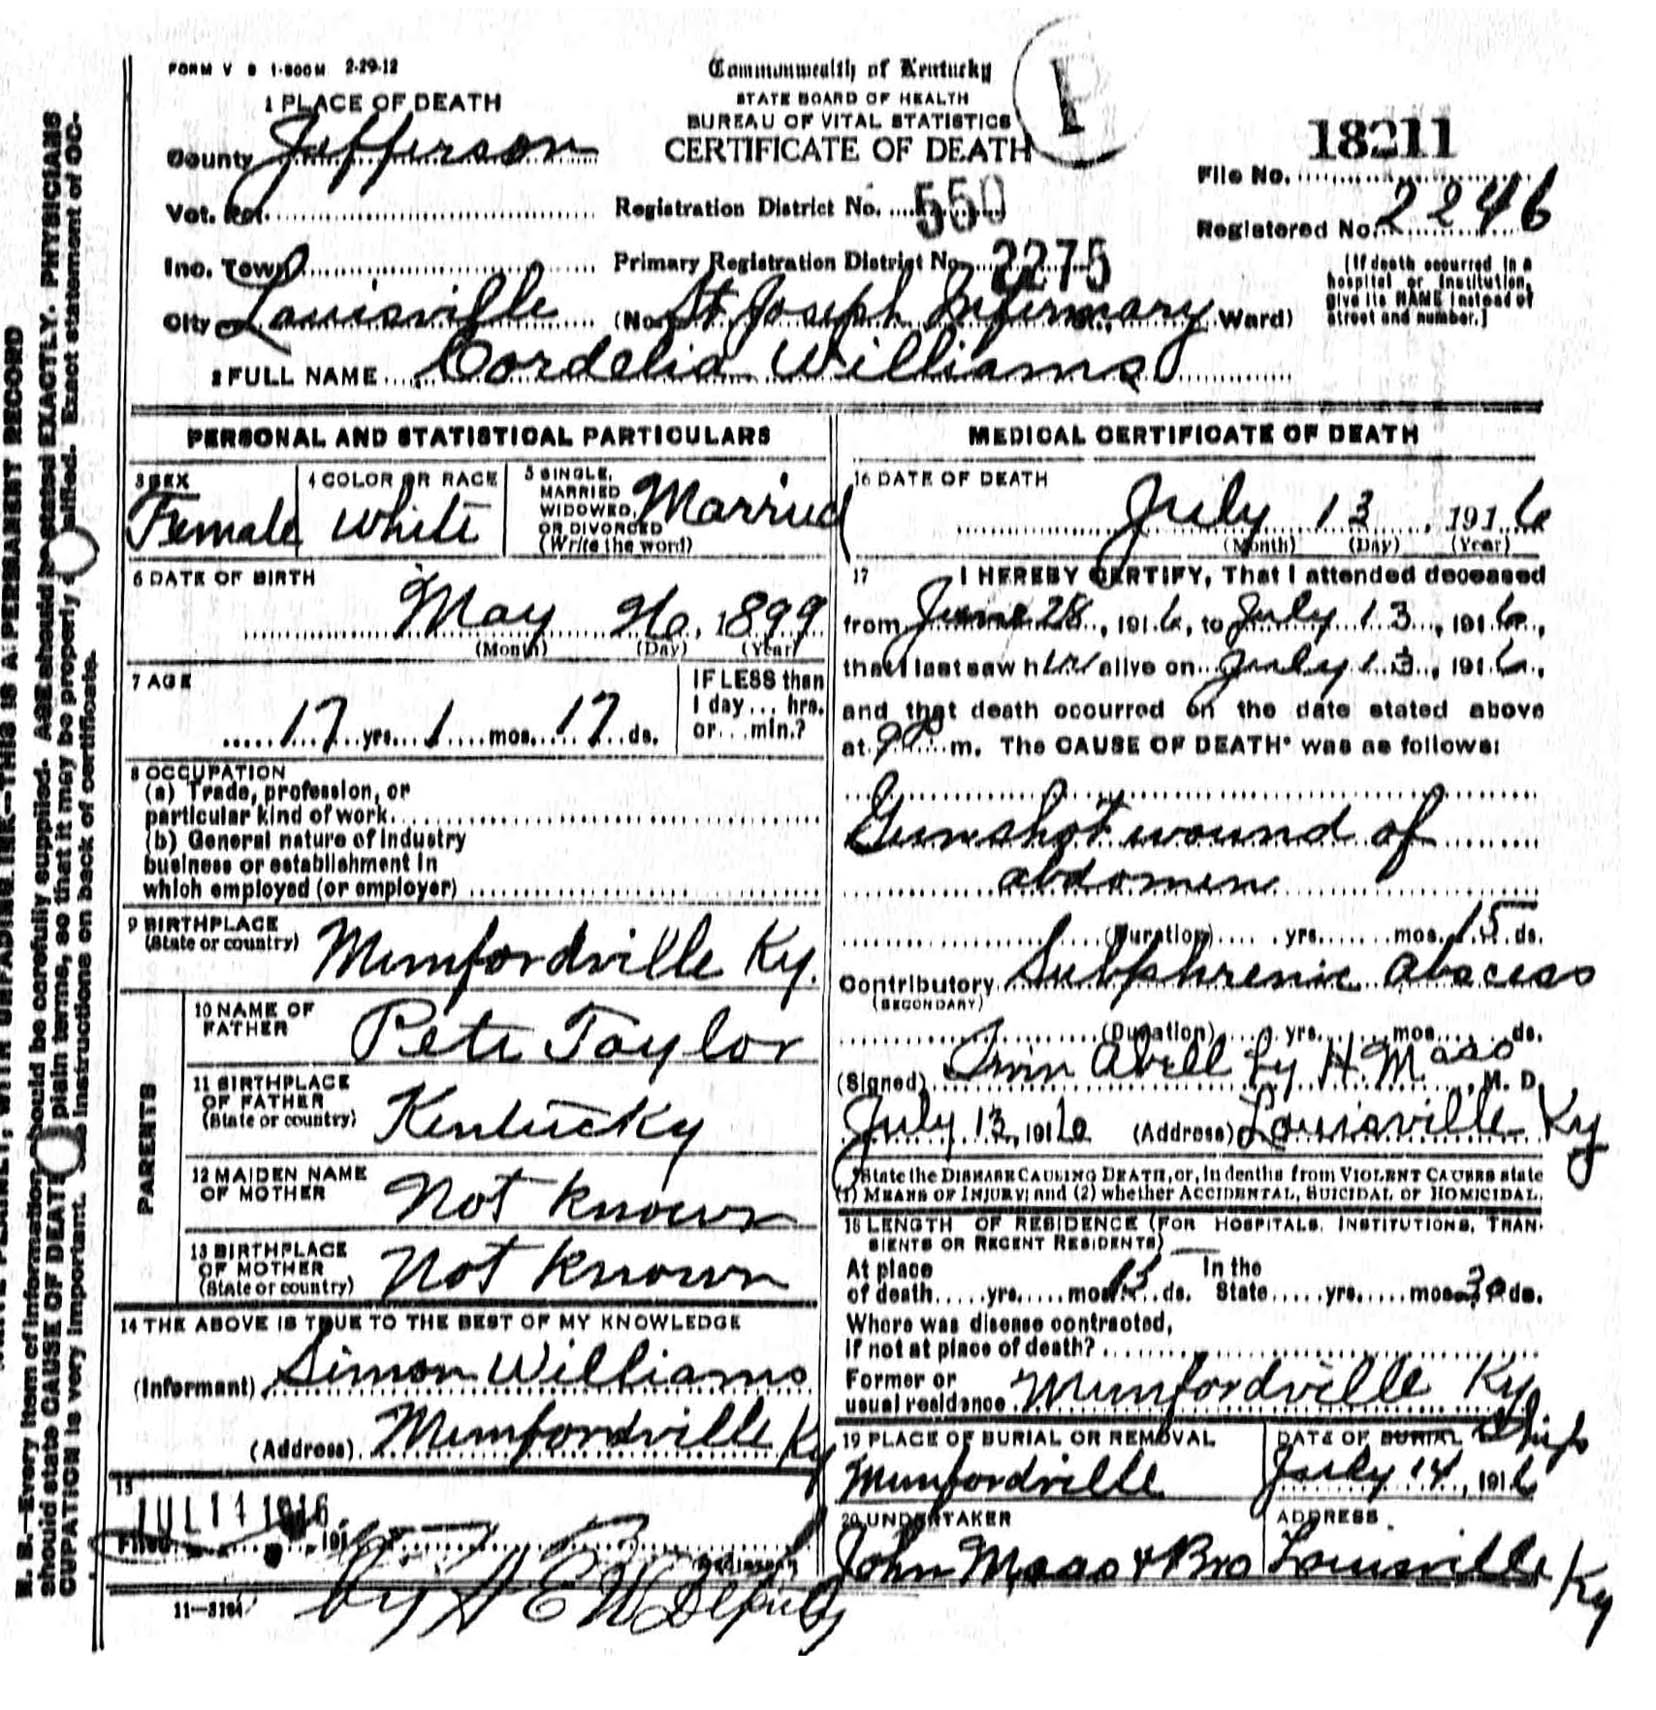 FORM V S 1-500M 2-29-12
Commonwealth of Kentucky
STATE BOARD OF HEALTH
BUREAU OF VITAL STATISTICS
CERTIFICATE OF DEATH
P
1 PLACE OF DEATH
County Jefferson
Vot. Pct.
Inc. Town
City Louisville (No. St Joseph Infirmary Ward)
Registration District No. 550
Primary Registration District No. 2275
18211
File No.
Registered No. 2246
[If death occurred in a
hospital or institution,
give its NAME instead of
street and number.]
2 FULL NAME Cordelia Williams
PERSONAL AND STATISTICAL PARTICULARS
3 SEX
Female
4 COLOR OR RACE
White
5 SINGLE,
MARRIED
WIDOWED,
OR DIVORCED
(Write the word)
Married
6 DATE OF BIRTH
May 26, 1899
(Month) (Day) (Year)
7 AGE
17 yrs. 1 mos. 17 ds.
IF LESS than
1 day... hrs.
or... min.?
8 OCCUPATION
(a) Trade, profession, or
particular kind of work
(b) General nature of industry
business or establishment in
which employed (or employer)
9 BIRTHPLACE
(State or country)
Munfordville Ky.
PARENTS
10 NAME OF
FATHER
Pete Taylor
11 BIRTHPLACE
OF FATHER
(State or country)
Kentucky
12 MAIDEN NAME
OF MOTHER
Not known
13 BIRTHPLACE
OF MOTHER
(State or country)
Not known
14 THE ABOVE IS TRUE TO THE BEST OF MY KNOWLEDGE
(Informant) Simon Williams
(Address) Munfordville Ky
15
JUL 14 1916
Filed 191
by H E W Deputy
11-3184
MEDICAL CERTIFICATE OF DEATH
16 DATE OF DEATH
July 13, 1916
(Month) (Day) (Year)
17 I HEREBY CERTIFY, That I attended deceased
from June 28, 1916, to July 13, 1916,
that I last saw her alive on July 13, 1916,
and that death occurred on the date stated above
at 9 P. m. The CAUSE OF DEATH* was as follows:
Gunshot wound of
abdomen
(Duration) yrs. mos. 15 ds.
Contributory Subphrenic abscess
(SECONDARY)
(Duration) yrs. mos. ds.
(Signed) Irvin Abell by H. Maas, M. D.
July 13, 1916 (Address) Louisville Ky
*State the DISEASE CAUSING DEATH, or, in deaths from VIOLENT CAUSES state
(1) MEANS OF INJURY; and (2) whether ACCIDENTAL, SUICIDAL or HOMICIDAL.
18 LENGTH OF RESIDENCE (FOR HOSPITALS, INSTITUTIONS, TRAN-
SIENTS OR RECENT RESIDENTS)
At place
of death yrs. mos. 15 ds.
In the
State yrs. mos. 30 ds.
Where was disease contracted,
If not at place of death?
Former or
usual residence Munfordville Ky
19 PLACE OF BURIAL OR REMOVAL
Munfordville
DATE OF BURIAL Ship
July 14, 1916
20 UNDERTAKER
John Maas & Bro
ADDRESS
Louisville Ky
N. B.—Every item of information should be carefully supplied. AGE should be stated EXACTLY. PHYSICIANS
should state CAUSE OF DEATH plain terms, so that it may be properly classified. Exact statement of OC-
CUPATION is very important. instructions on back of certificate.
UNFADING INK—THIS IS A PERMANENT RECORD